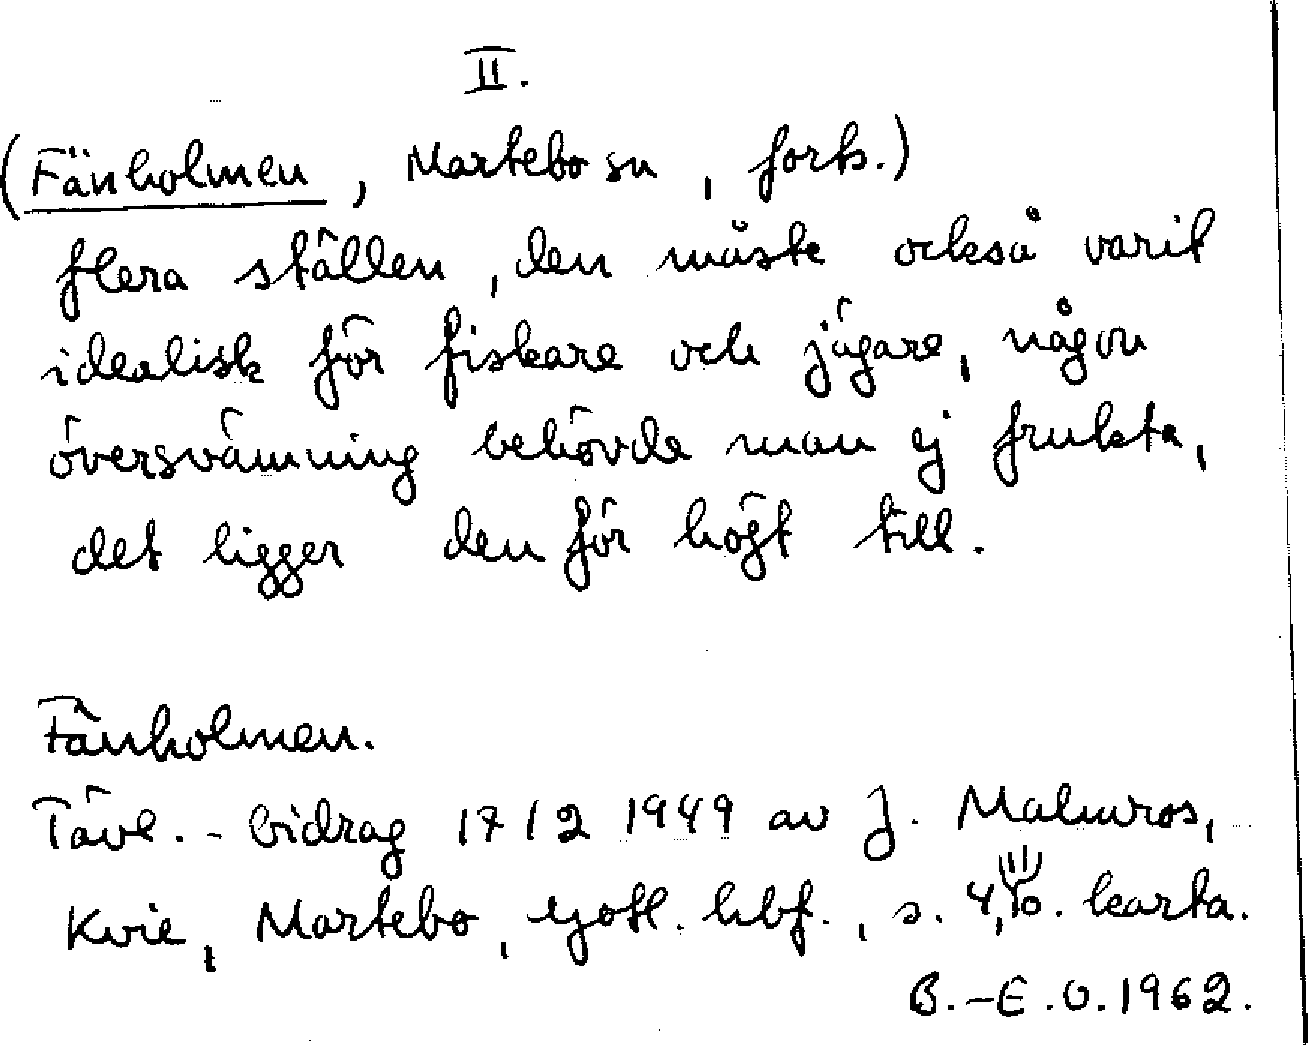 II.
(Fänholmen, Martebo sn, forts.)
flera ställen, den måste också varit
idealisk för fiskare och jägare, någon
översvämning behövde man ej frukta,
det ligger den för högt till.
Fänholmen.
Tävl. - bidrag 17/2 1949 av J. Malmros,
Kvie, Martebo, Gotl. hbf., s. 4, 10. karta.
B.-E.O. 1962.